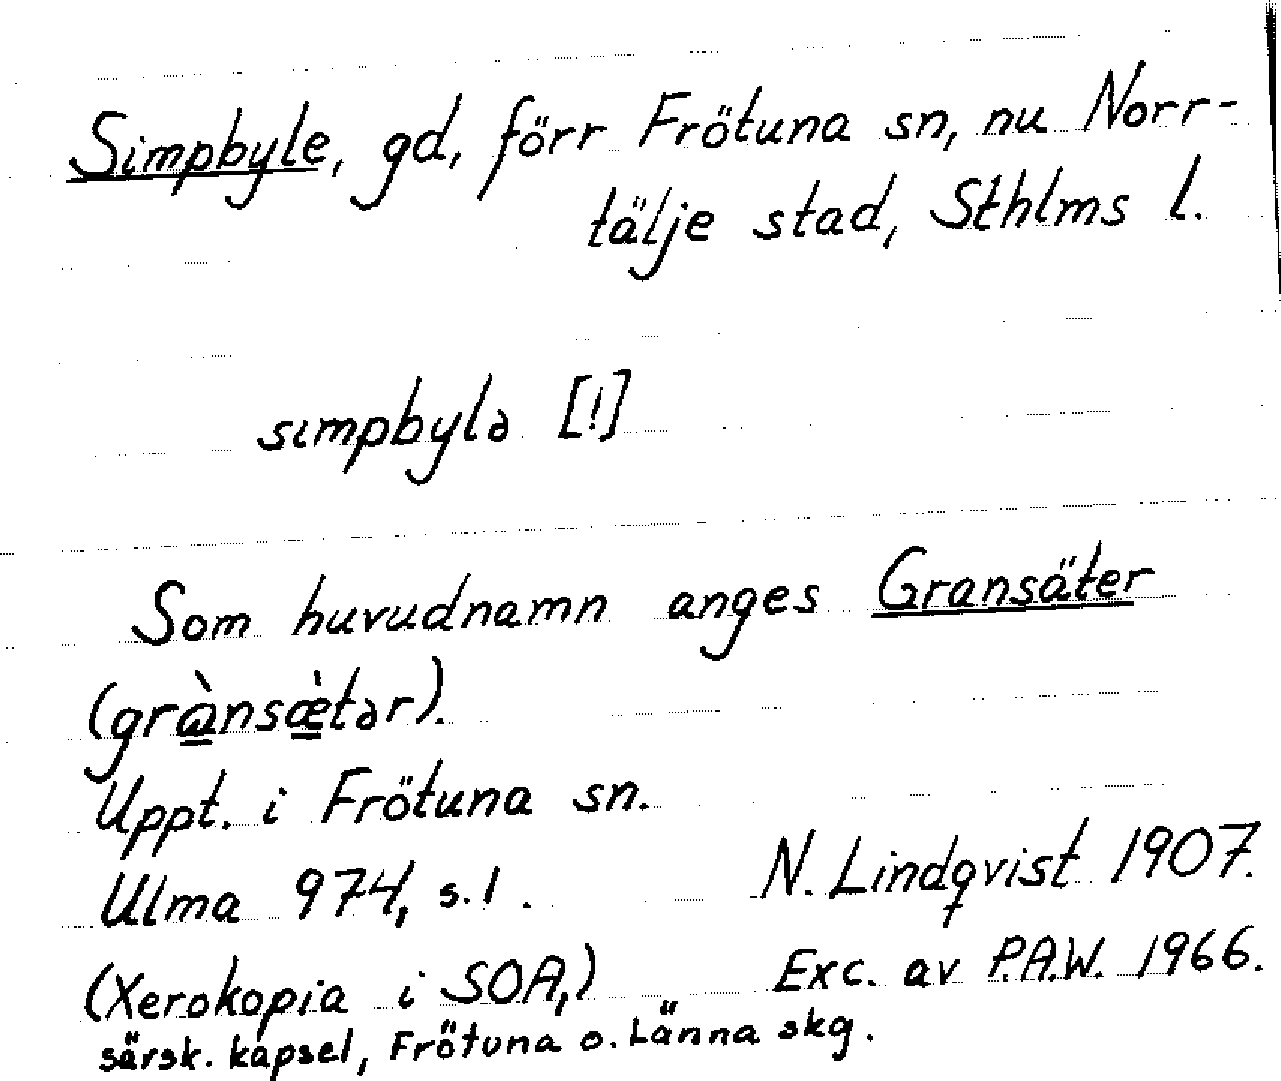 Simpbyle, gd, förr Frötuna sn, nu Norr-
tälje stad, Sthlms l.
sımpbylə [!]
Som huvudnamn anges Gransäter
(grànsæ̀tər).
Uppt. i Frötuna sn.
Ulma 974, s. 1. N. Lindqvist 1907.
(Xerokopia i SOA,) Exc. av P.A.W. 1966.
särsk. kapsel, Frötuna o. Länna skg.